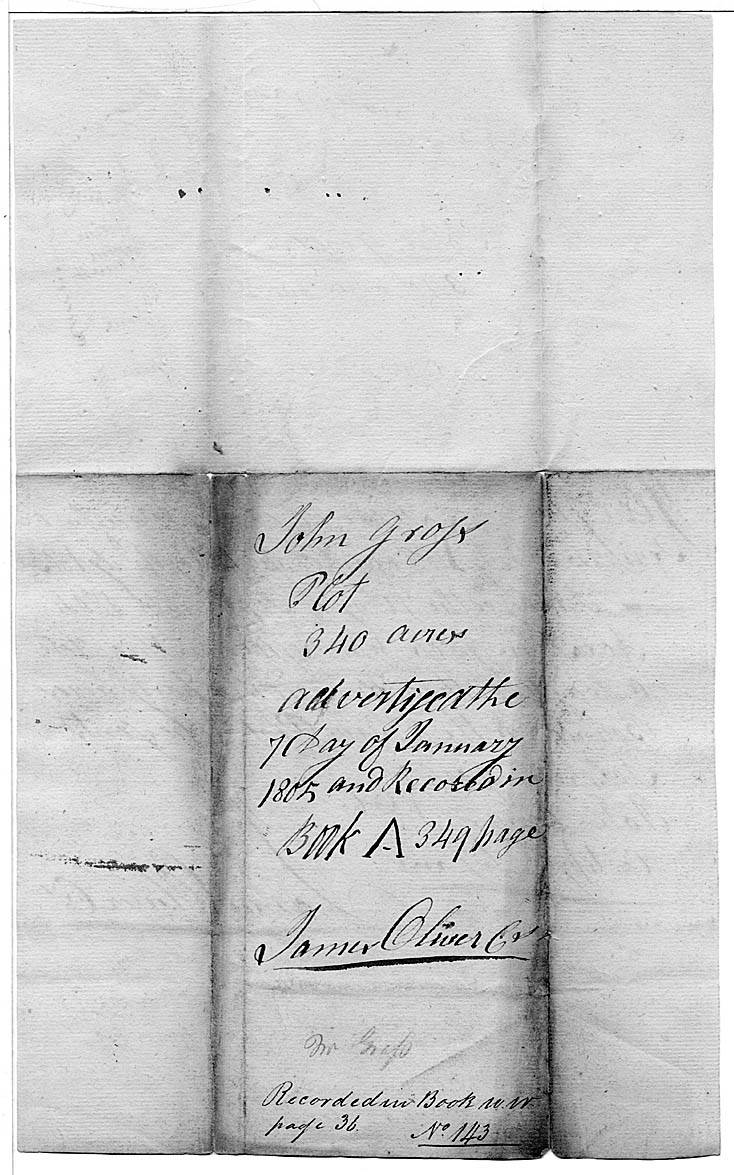 John Gross
Plot
340 acres
advertised the
7 Day of January
1805 and Recored in
Book A 349 page
James Oliver CS
Gross
Recorded in Book W.W
page 36.
No. 143